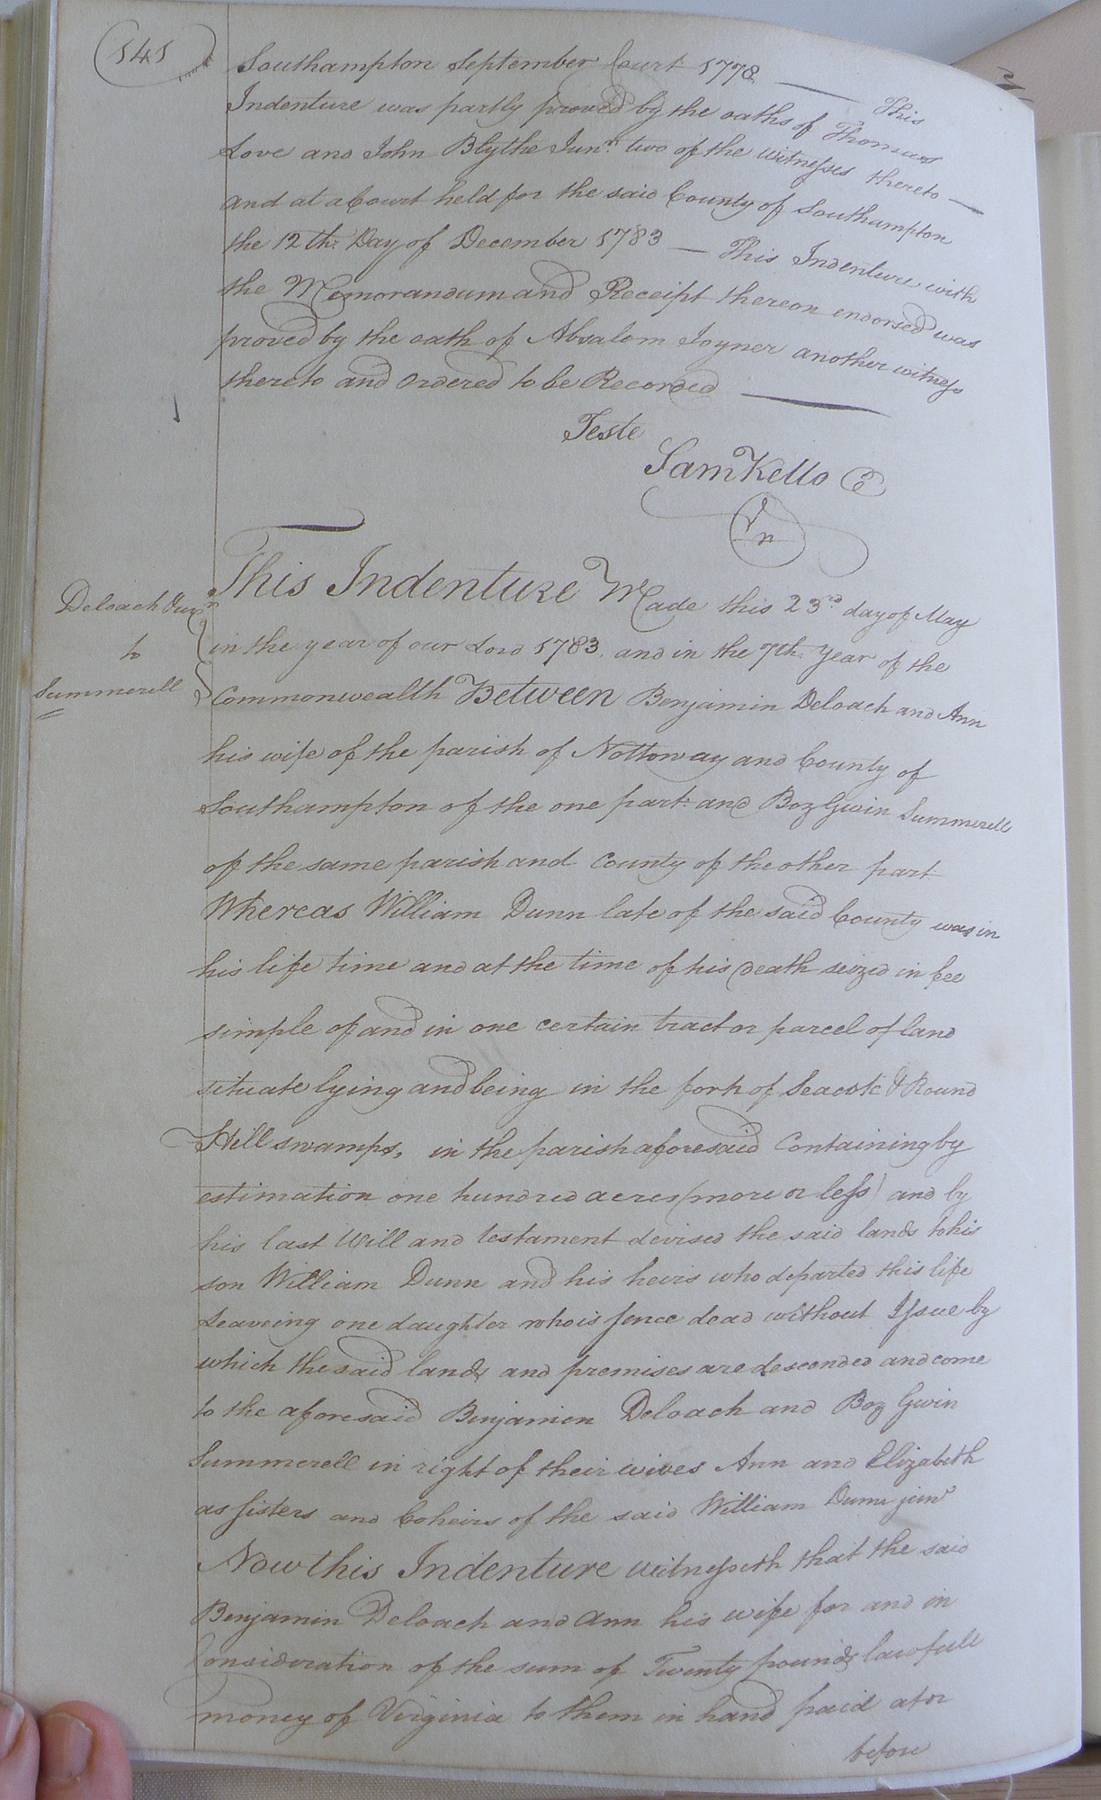 545
Southampton September Court 1778 — This
Indenture was partly proved by the oaths of Thomas
Love and John Blythe Junr. two of the witnesses thereto —
and at a Court held for the said County of Southampton
the 12th Day of December 1783 — This Indenture with
the Memorandum and Receipt thereon endorsed was
proved by the oath of Absalom Joyner another witness
thereto and Ordered to be Recorded —
Teste
Sam Kello C
Deloach & uxr
to
Summerell
This Indenture Made this 23rd. day of May
in the year of our Lord 1783. and in the 7th. Year of the
Commonwealth Between Benjamin Deloach and Ann
his wife of the parish of Nottoway and County of
Southampton of the one part and Boz Gwin Summerell
of the same parish and County of the other part
Whereas William Dunn late of the said County was in
his life time and at the time of his death seized in fee
simple of and in one certain tract or parcel of land
situate lying and being in the fork of Seacock & Round
Hill swamps, in the parish aforesaid Containing by
estimation one hundred acres (more or less) and by
his last Will and testament devised the said lands to his
son William Dunn and his heirs who departed this life
Leaveing one daughter who is sence dead without Issue by
which the said lands and premises are descended and come
to the aforesaid Benjamin Deloach and Boz Gwin
Summerell in right of their wives Ann and Elizabeth
as Sisters and Coheirs of the said William Dunn junr
Now this Indenture witnesseth that the said
Benjamin Deloach and Ann his wife for and in
Consideration of the sum of Twenty pounds lawfull
money of Virginia to them in hand paid at or
before